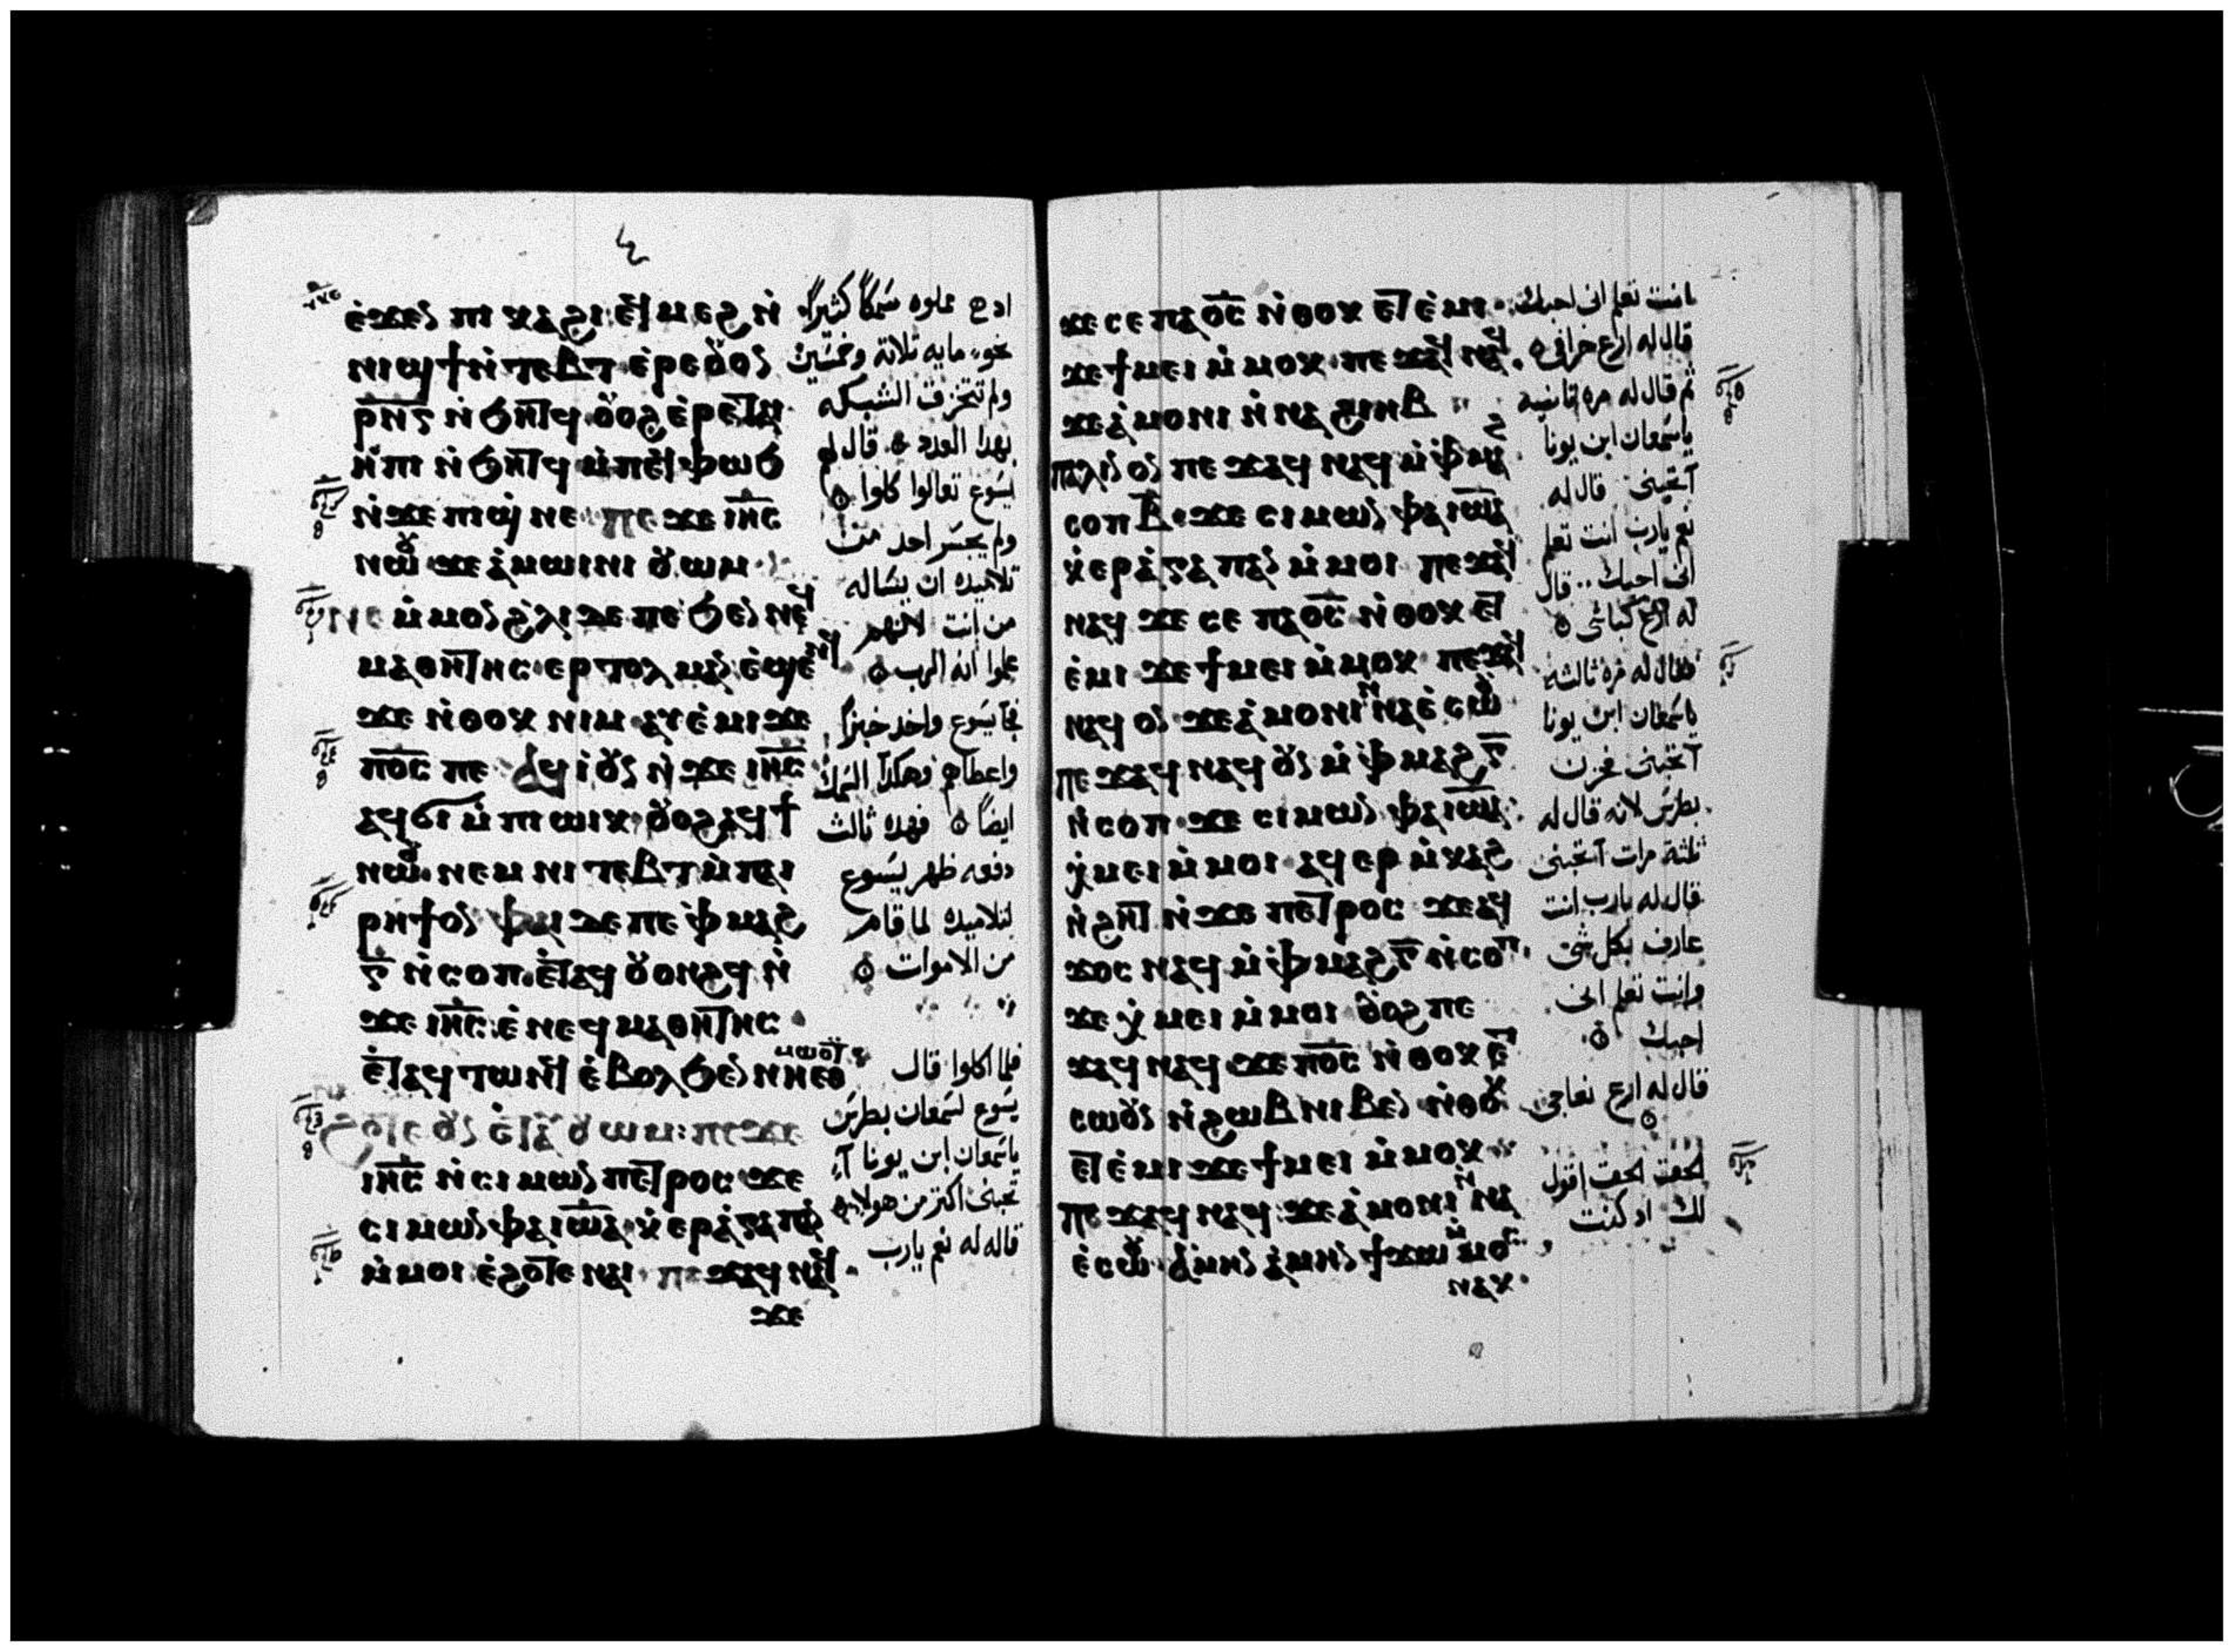 ⲉ̀ϫⲉⲛ ⲡⲓⲭⲁϩⲓ· ⲉϥⲙⲉϩ ⲛ̀
ⲛⲓϣϯ ⲛ̀ⲧⲉⲃⲧ ⲉ̀ⲣⲉⲟⲩⲟⲛ
ⲣ̅ⲛ̅ⲅ̅ ⲛ̀ϧⲏⲧϥ ⲟⲩⲟϩ ⲉ̀ⲣⲉⲧⲁⲓ
ⲏ̀ⲡⲓ ⲛ̀ϧⲏⲧϥ ⲙ̀ⲡⲉϥⲫⲱϧ
ⲛ̀ϫⲉ ⲡⲓϣⲛⲉ· ⲡⲉϫⲉ ⲓⲏ̅ⲥ̅
ⲛⲱⲟⲩ ϫⲉ ⲁ̀ⲙⲱⲓⲛⲓ ⲟⲩⲱⲙ
ⲛⲉ ⲙ̀ⲙⲟⲛ ϩ̀ⲗⲓ ⲇⲉ ⲡⲉ ϧⲉⲛ ⲛⲉϥ
ⲙⲁⲑⲏⲧⲏⲥ ⲉⲣⲧⲟⲗⲙⲁⲛ ⲉ̀ϣⲉⲛϥ
ϫⲉ ⲛ̀ⲑⲟⲕ ⲛⲓⲙ ⲁⲩⲉ̀ⲙⲓ ϫⲉ
ⲡⲟ̅ⲥ̅ ⲡⲉ ⲁϥⲓ̀ ⲟⲩⲛ ⲛ̀ϫⲉ ⲓⲏ̅ⲥ̅
ⲁϥϭⲓ ⲙ̀ⲡⲓⲱⲓⲕ ⲟⲩⲟϩ ⲁϥϯ
ⲛⲱⲟⲩ ⲛⲉⲙ ⲛⲓⲧⲉⲃⲧ ⲙ̀ⲡⲁⲓ
ⲣⲏϯ ⲟⲛ ⲫⲁⲓ ⲇⲉ ⲡⲉ ⲫ̀ⲙⲁϩ
ⲅ̅ ⲛ̀ⲥⲟⲡ ⲉ̀ⲧⲁϥⲟⲩⲟⲛϩϥ ⲛ̀
ϫⲉ ⲓⲏ̅ⲥ̅ ⲉ̀ⲛⲉϥⲙⲁⲑⲏⲧⲏⲥ
ⲉ̀ⲧⲁϥⲧⲱⲛϥ ⲉ̀ⲃⲟⲗ ϧⲉⲛ ⲛⲏⲉⲑⲙⲱⲟⲩⲧ
ϩⲟⲧⲉ ⲟⲩⲛ ⲉ̀ⲧⲁⲩⲟⲩⲱⲙ: ⲡⲉϫⲉ
ⲓⲏ̅ⲥ̅ ⲛ̀ⲥⲓⲙⲱⲛ ⲡⲉⲧⲣⲟⲥ ϫⲉ
ⲥⲓⲙⲱⲛ ⲫⲁⲓⲱⲛⲁ ⲭ̀ⲉⲣⲁ̀ⲅⲁⲡⲁⲛ
ⲙ̀ⲙⲟⲓ ⲉ̀ϩⲟⲧⲉ ⲛⲁⲓ ⲡⲉϫⲁϥ ⲛⲁϥ
ϫⲉ
علوه سمكاً كثيراً
نحو مايه تلاتة وخمسين
ولم تتخزق الشبكه
بهدا العدد قال لهم
يسوع تعالوا كلوا
ولم يجسر احد من
تلاميده ان يساله
من انت لانهم
علموا انه الرب
فجا يسوع واخد خبزاً
واعطاهم وهكدا السمك
ايضاً فهده ثالث
دفعه ظهر يسوع
لتلاميده لما قام
من الاموات
فلما اكلوا قال
يسوع لسمعان بطرس
ياسمعان ابن يونا
تحبنى اكتر من هولاء
قاله له نعم يارب
ϫⲉ ⲥⲉ ⲡⲁⲟ̅ⲥ̅ ⲛ̀ⲑⲟⲕ ⲉⲧⲉ̀ⲙⲓ
ϫⲉ ϯⲙⲉⲓ ⲙ̀ⲙⲟⲕ· ⲡⲉϫⲁϥ ⲛⲁϥ
ϫⲉ ⲁ̀ⲙⲟⲛⲓ ⲛ̀ⲛⲁϩⲓⲏⲃ
ⲡⲁⲗⲓⲛ ⲟⲛ ⲡⲉϫⲁϥ ⲛⲁϥ ⲙ̀ⲫ̀ⲙⲁϩ
ⲥⲟⲡ ⲃ̅· ϫⲉ ⲥⲓⲙⲱⲛ ⲫⲁⲓⲱⲛⲁ
ⲭ̀ⲉⲣⲁ̀ⲅⲁⲡⲁⲛ ⲙ̀ⲙⲟⲓ ⲡⲉϫⲁϥ
ⲛⲁϥ ϫⲉ ⲥⲉ ⲡⲁⲟ̅ⲥ̅ ⲛ̀ⲑⲟⲕ ⲉⲧ
ⲉ̀ⲙⲓ ϫⲉ ϯⲙⲉⲓ ⲙ̀ⲙⲟⲕ ⲡⲉϫⲁϥ
ⲛⲁϥ ⲟⲛ ϫⲉ ⲁ̀ⲙⲟⲛⲓ ⲛ̀ⲛⲁⲉ̀ⲥⲱⲟⲩ
ⲡⲉϫⲁϥ ⲛⲁϥ ⲟⲩⲛ ⲙ̀ⲫ̀ⲙⲁϩ ⲅ̅
ⲛ̀ⲥⲟⲡ ϫⲉ ⲥⲓⲙⲱⲛ ⲫⲁⲓⲱⲛⲁ:
ⲭ̀ⲙⲉⲓ ⲙ̀ⲙⲟⲓ ⲁϥⲉⲣ ⲙ̀ⲕⲁϩ
ⲛ̀ϩⲏⲧ ⲛ̀ϫⲉ ⲡⲉⲧⲣⲟⲥ ϫⲉ ⲁϥ
ϫⲟⲥ ⲛⲁϥ ⲙ̀ⲫ̀ⲙⲁϩ ⲅ̅ ⲛ̀ⲥⲟⲡ
ϫⲉ ⲭ̀ⲙⲉⲓ ⲙ̀ⲙⲟⲓ ⲟⲩⲟϩ ⲡⲉ
ϫⲁϥ ⲛⲁϥ ϫⲉ ⲡⲟ̅ⲥ̅ ⲛ̀ⲑⲟⲕ ⲉⲧ
ⲥⲱⲟⲩⲛ ⲛ̀ϩⲱⲃ ⲛⲓⲃⲉⲛ ⲛ̀ⲑⲟⲕ
ⲉⲧⲉ̀ⲙⲓ ϫⲉ ϯⲙⲉⲓ ⲙ̀ⲙⲟⲕ
ⲡⲉϫⲁϥ ⲛⲁϥ: ϫⲉ ⲁ̀ⲙⲟⲛⲓ ⲛ̀ⲛⲁ
ⲉ̀ⲥⲱⲟⲩ ⲁ̀ⲙⲏⲛ ⲁ̀ⲙⲏⲛ ϯϫⲱ ⲙ̀ⲙⲟⲥ
ⲛⲁⲕ
انت تعلم انى احبك
قال له ارع خرافى
ثم قال له مره تانيه
ياسمعان ابن يونا
آتحبنى قال له
نعم يارب انت تعلم
انى احبك قال
له ارع كباشى
فقال له مره ثالثه
ياسمعان ابن يونا
آتحبنى فحزن
بطرس لانه قال له
ثلثة مرات آتحبنى
قال له يارب انت
عارف بكل شى
وانت تعلم انى
احبك
قال له ارع نعاجى
الحق الحق اقول
لك اد كنت